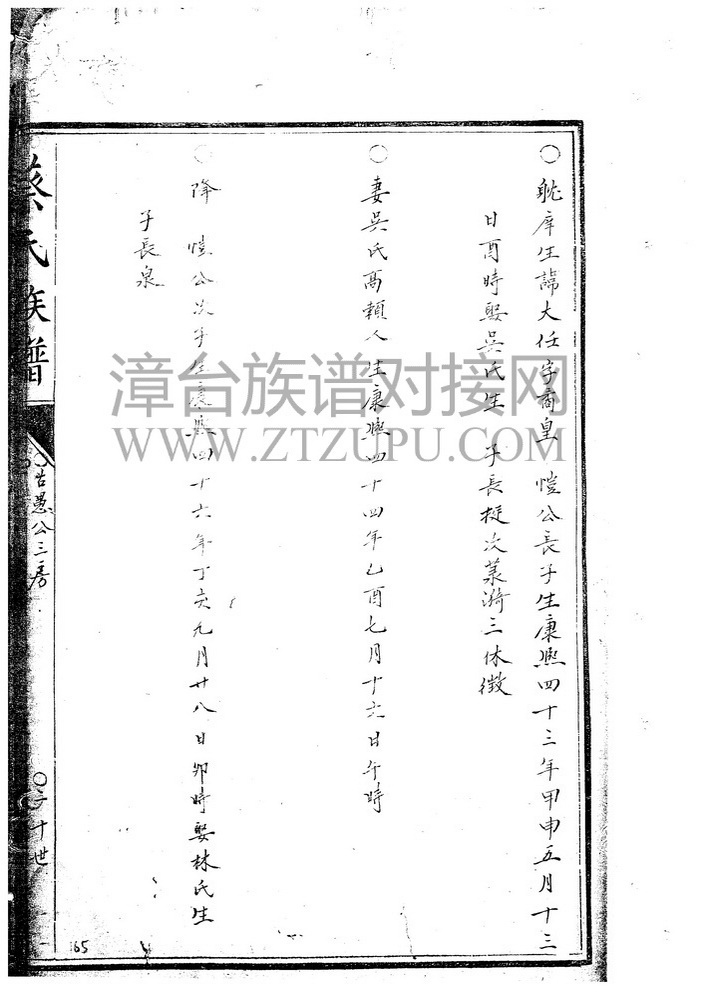 ○ 躭庠生諱大任字商皇 愷公長子生康熈四十三年甲申五月十三
日酉時娶吳氏生 子長挺次菉漪三休徵
○ 妻吳氏高賴人生康熈四十四年乙酉七月十六日午時
○ 降 愷公次子生康熈四十六年丁亥九月廿八日卯時娶林氏生
子長泉
蔡氏族譜
○古愚公三房
○二十世
165
漳台族谱对接网
WWW.ZTZUPU.COM